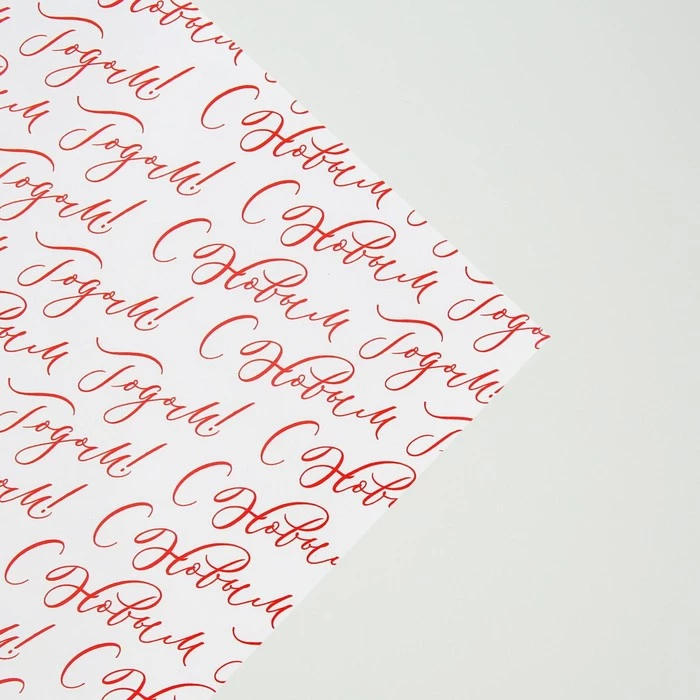 Новым
Годом!
С Новым Годо
ым Годом!
С Новым Годом!
Годом!
С Новым Годом!
Годом!
С Новым Г
вым Годом!
С Новы
Годом!
С Новым
С Новым
С Новым
С Новым